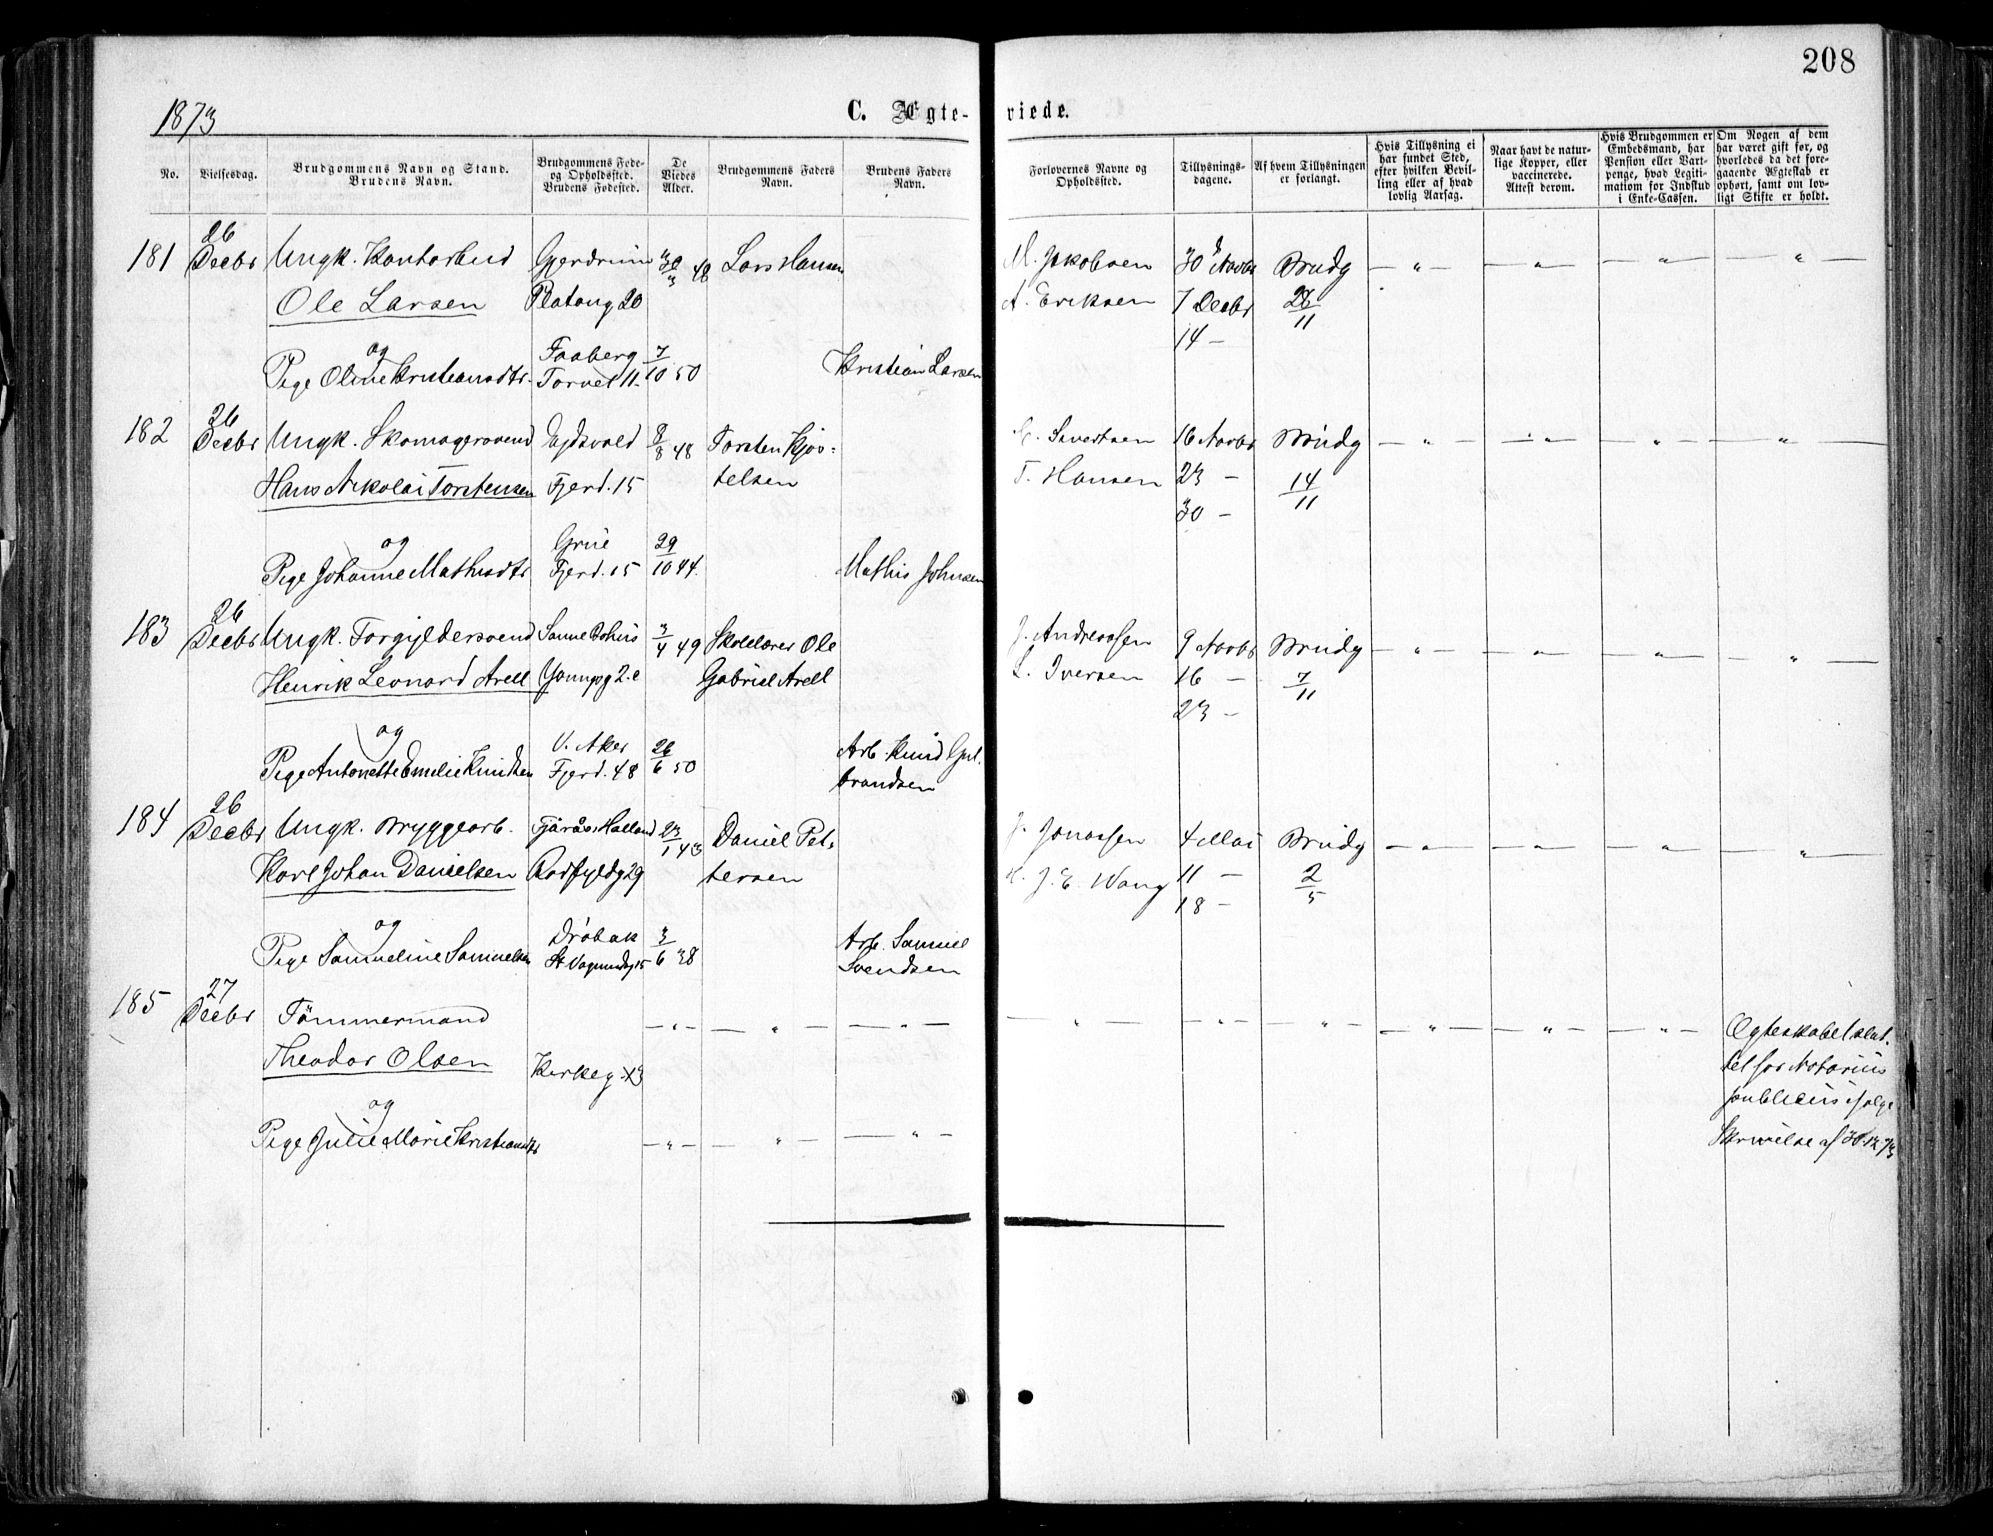 208
1873
C. Ægte-viede.
No.
Vielsesdag.
Brudgommens Navn og Stand.
Brudens Navn.
Brudgommens Føde-
og Opholdssted.
Brudens Fødested.
De
Viedes
Alder.
Brudgommens Faders
Navn.
Brudens Faders
Navn.
Forlovernes Navne og
Opholdssted.
Tillysnings-
dagene.
Af hvem Tillysningen
er forlangt.
Hvis Tillysning ei
har fundet Sted,
efter hvilken Bevil-
ling eller af hvad
lovlig Aarsag.
Naar havt de natur-
lige Kopper, eller
vaccinerede.
Attest derom.
Hvis Brudgommen er
Embedsmand, har
Pension eller Vart-
penge, hvad Legiti-
mation for Indskud
i Enke-Cassen.
Om Nogen af dem
har været gift før, og
hvorledes da det fore-
gaaende Ægteskab er
ophørt, samt om lov-
ligt Skifte er holdt.
181 26 Decbr Ungk. Kontorbud Gjerdrum 30/3 48 Lars Hansen M. Jakobsen 30 Novbr Brudg
Ole Larsen Platoug 20 A. Eriksen 7 Decbr 28/11
14 -
og Faaberg 7/10 50
Pige Oline Kristiansdtr. Torvet 11 Kristian Larsen
182 26 Decbr Ungk. Skomagersvend Ejdsvold 8/8 48 Torsten Kjøs- Sivertsen 16 Novbr Brudg
Hans Nikolai Torstensen Fjerd. 15 telsen T. Hansen 23 - 14/11
30 -
og Grue 29/10 44
Pige Johanne Mathisdtr Fjerd. 15 Mathis Johnsen
183 26 Decbr Ungk. Forgyldersvend 3/4 49 Skolelærer Ole J. Andreassen 9 Novbr Brudg
Henrik Leonard Arell 2.e Gabriel Arell L. Iversen 16 - 7/11
23 -
og V. Aker 26/6 50 Arb. Knud Gul-
Pige Antonette Emelie Knudsen Fjerd. 48 brandsen
184 26 Decbr Ungk. Bryggearb. Fjärås Halland 23/1 43 Daniel Pet- J. Jonassen 4 Mai Brudg
Karl Johan Danielsen Rødfyldg 29 tersen J. E. Wang 11 - 2/5
18 -
og Drøbak 3/6 38 Arb. Samuel
Pige Samueline Samuelsen Svendsen
185 27 Decbr Tømmermand Ægteskabet slut-
Theodor Olsen Kirkeg 13 tet for Notarius
og publicus ifølge
Pige Julie Marie Kristiansdtr Skrivelse af 30.12 73